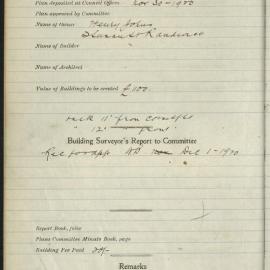 Plan deposited at Council Offices Nov 30 - 1900
Plan approved by Committee
Name of Owner Henry Johns
Name of Builder
Name of Architect
Value of Buildings to be erected £100.
back 11' from
" 12' " front
Building Surveyor's Report to Committee
Rec for app Dec 1 - 1900
Report Book, folio
Plans Committee Minute Book, page
Building Fee Paid 20/-
Remarks